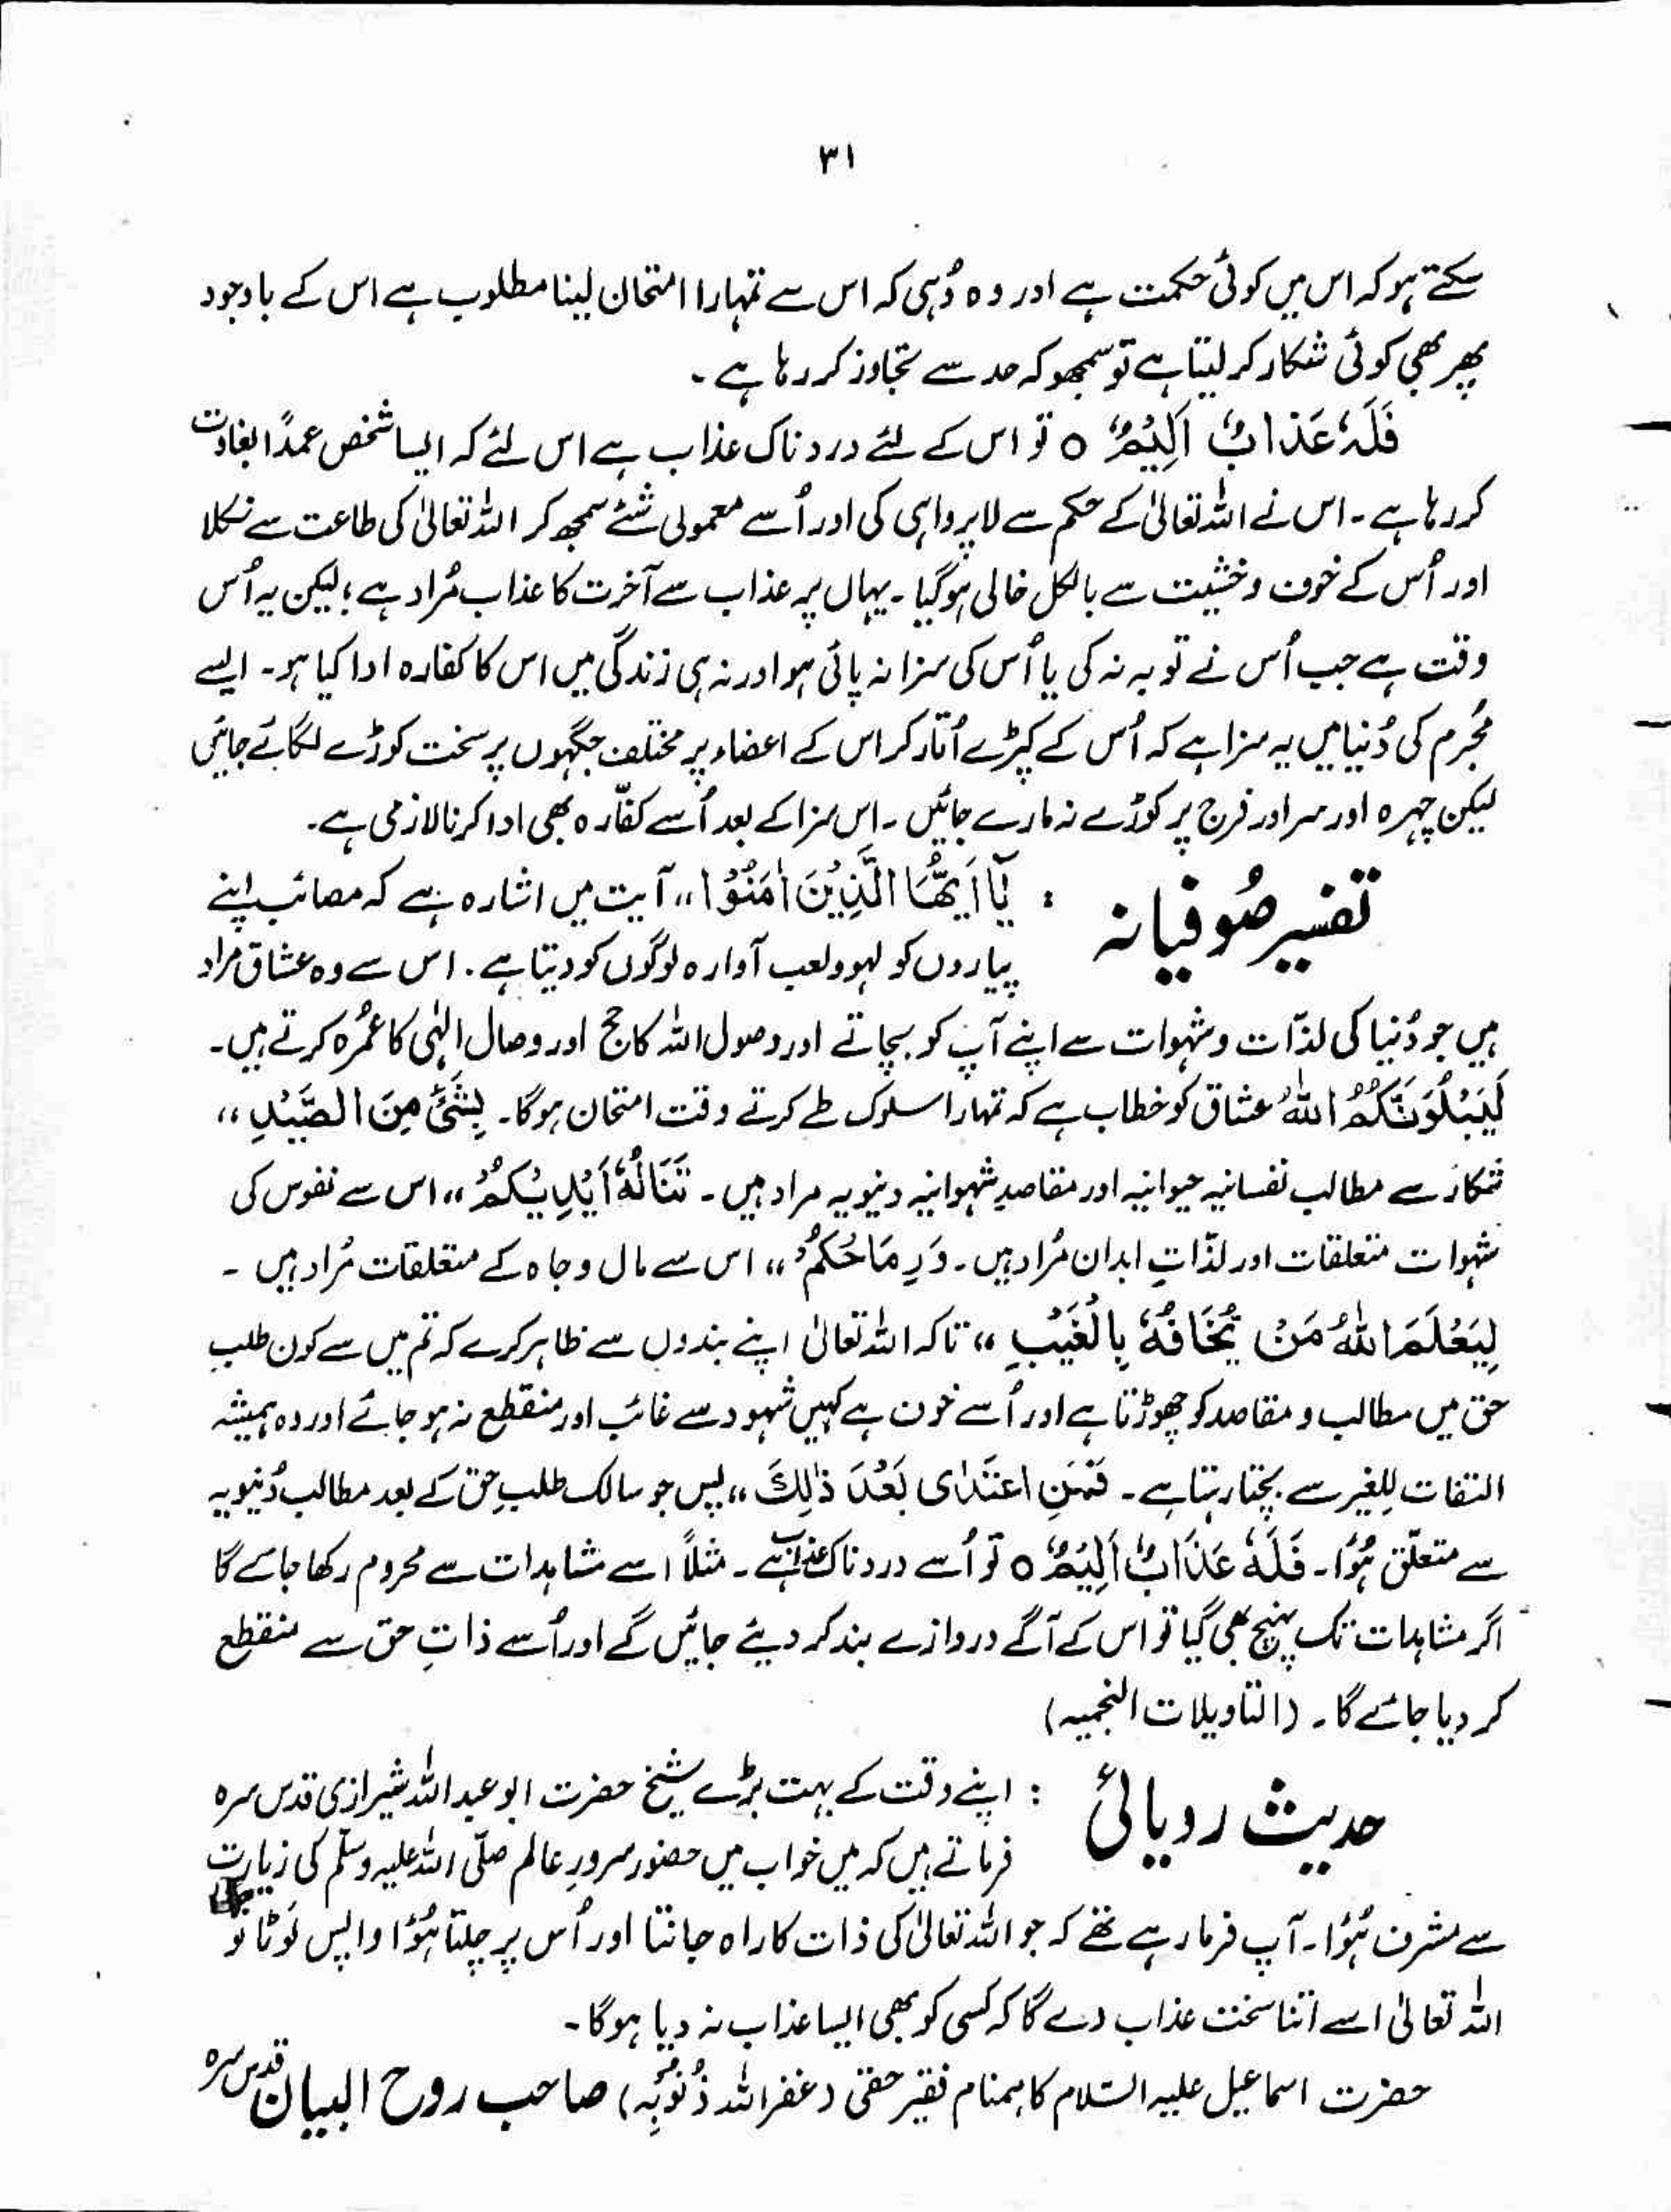 ٣١
سکتے ہو کہ اس میں کوئی حکمت ہے اور وہ وُہی کہ اس سے تمہارا امتحان لینا مطلوب ہے اس کے باوجود
پھر بھی کوئی شکار کر لیتا ہے تو سمجھو کہ حد سے تجاوز کر رہا ہے ۔
فَلَہٗ عَذَابٌ اَلِیْمٌ ○ تو اس کے لئے دردناک عذاب ہے اس لئے کہ ایسا شخص عمداً بغاوت
کر رہا ہے ۔ اس نے اللہ تعالیٰ کے حکم سے لاپرواہی کی اور اُسے معمولی شئے سمجھ کر اللہ تعالیٰ کی طاعت سے نکلا
اور اُس کے خوف و خشیت سے بالکل خالی ہو گیا ۔ یہاں پر عذاب سے آخرت کا عذاب مُراد ہے ؛ لیکن یہ اُس
وقت ہے جب اُس نے توبہ نہ کی یا اُس کی سزا نہ پائی ہو اور نہ ہی زندگی میں اس کا کفارہ ادا کیا ہو ۔ ایسے
مُجرم کی دُنیا میں یہ سزا ہے کہ اُس کے کپڑے اُتار کر اس کے اعضاء پر مختلف جگہوں پر سخت کوڑے لگائے جائیں
لیکن چہرہ اور سر اور فرج پر کوڑے نہ مارے جائیں ۔ اِس سزا کے بعد اُسے کفّارہ بھی ادا کرنا لازمی ہے ۔
تفسیر صُوفیانہ : یٰٓا اَیُّھَا الَّذِیْنَ اٰمَنُوْا ،، آیت میں اشارہ ہے کہ مصائب اپنے
پیاروں کو لہو و لعب آوارہ لوگوں کو دیتا ہے ۔ اس سے وہ عشاق مراد
ہیں جو دُنیا کی لذّات و شہوات سے اپنے آپ کو بچاتے اور وصول اللہ کا حج اور وصال الٰہی کا عمُرہ کرتے ہیں ۔
لَیَبْلُوَنَّکُمُ اللہُ عشاق کو خطاب ہے کہ تمہارا سلوک طے کرتے وقت امتحان ہوگا ۔ بِشَیْءٍ مِنَ الصَّیْدِ ،،
شکار سے مطالب نفسانیہ حیوانیہ اور مقاصدِ شہوانیہ دنیویہ مراد ہیں ۔ تَنَالُہٗ اَیْدِیْکُمْ ،، اس سے نفوس کی
شہوات متعلقات اور لذّاتِ ابدان مُراد ہیں ۔ وَرِمَاحُکُمْ ،، اس سے مال و جاہ کے متعلقات مُراد ہیں ۔
لِیَعْلَمَ اللہُ مَنْ یَّخَافُہٗ بِالْغَیْبِ ،، تاکہ اللہ تعالیٰ اپنے بندوں سے ظاہر کرے کہ تم میں سے کون طلب
حق میں مطالب و مقاصد کو چھوڑتا ہے اور اُسے خوف ہے کہیں شہود سے غائب اور منقطع نہ ہو جائے اور وہ ہمیشہ
التفات للغیر سے بچتا رہتا ہے ۔ فَمَنِ اعْتَدٰی بَعْدَ ذٰلِکَ ،، پس جو سالک طلبِ حق کے بعد مطالب دُنیویہ
سے متعلّق ہُوا ۔ فَلَہٗ عَذَابٌ اَلِیْمٌ ○ تو اُسے دردناک عذاب ہے ۔ مثلاً اسے مشاہدات سے محروم رکھا جائے گا
اگر مشاہدات تک پہنچ بھی گیا تو اس کے آگے دروازے بند کر دیئے جائیں گے اور اُسے ذاتِ حق سے منقطع
کر دیا جائے گا ۔ (التاویلات النجمیہ)
حدیث رویائی : اپنے وقت کے بہت بڑے شیخ حضرت ابو عبد اللہ شیرازی قدس سرہ
فرماتے ہیں کہ میں خواب میں حضور سرورِ عالم صلّی اللہ علیہ وسلّم کی زیارت
سے مشرف ہُوا ۔ آپ فرما رہے تھے کہ جو اللہ تعالیٰ کی ذات کا راہ جانتا اور اُس پر چلتا ہُوا واپس لَوٹا تو
اللہ تعالیٰ اسے اتنا سخت عذاب دے گا کہ کسی کو بھی ایسا عذاب نہ دیا ہوگا ۔
حضرت اسماعیل علیہ السّلام کا ہمنام فقیر حقی (غفر اللہ ذُنُوبُہٗ) صاحب روح البیان قدس سرہ